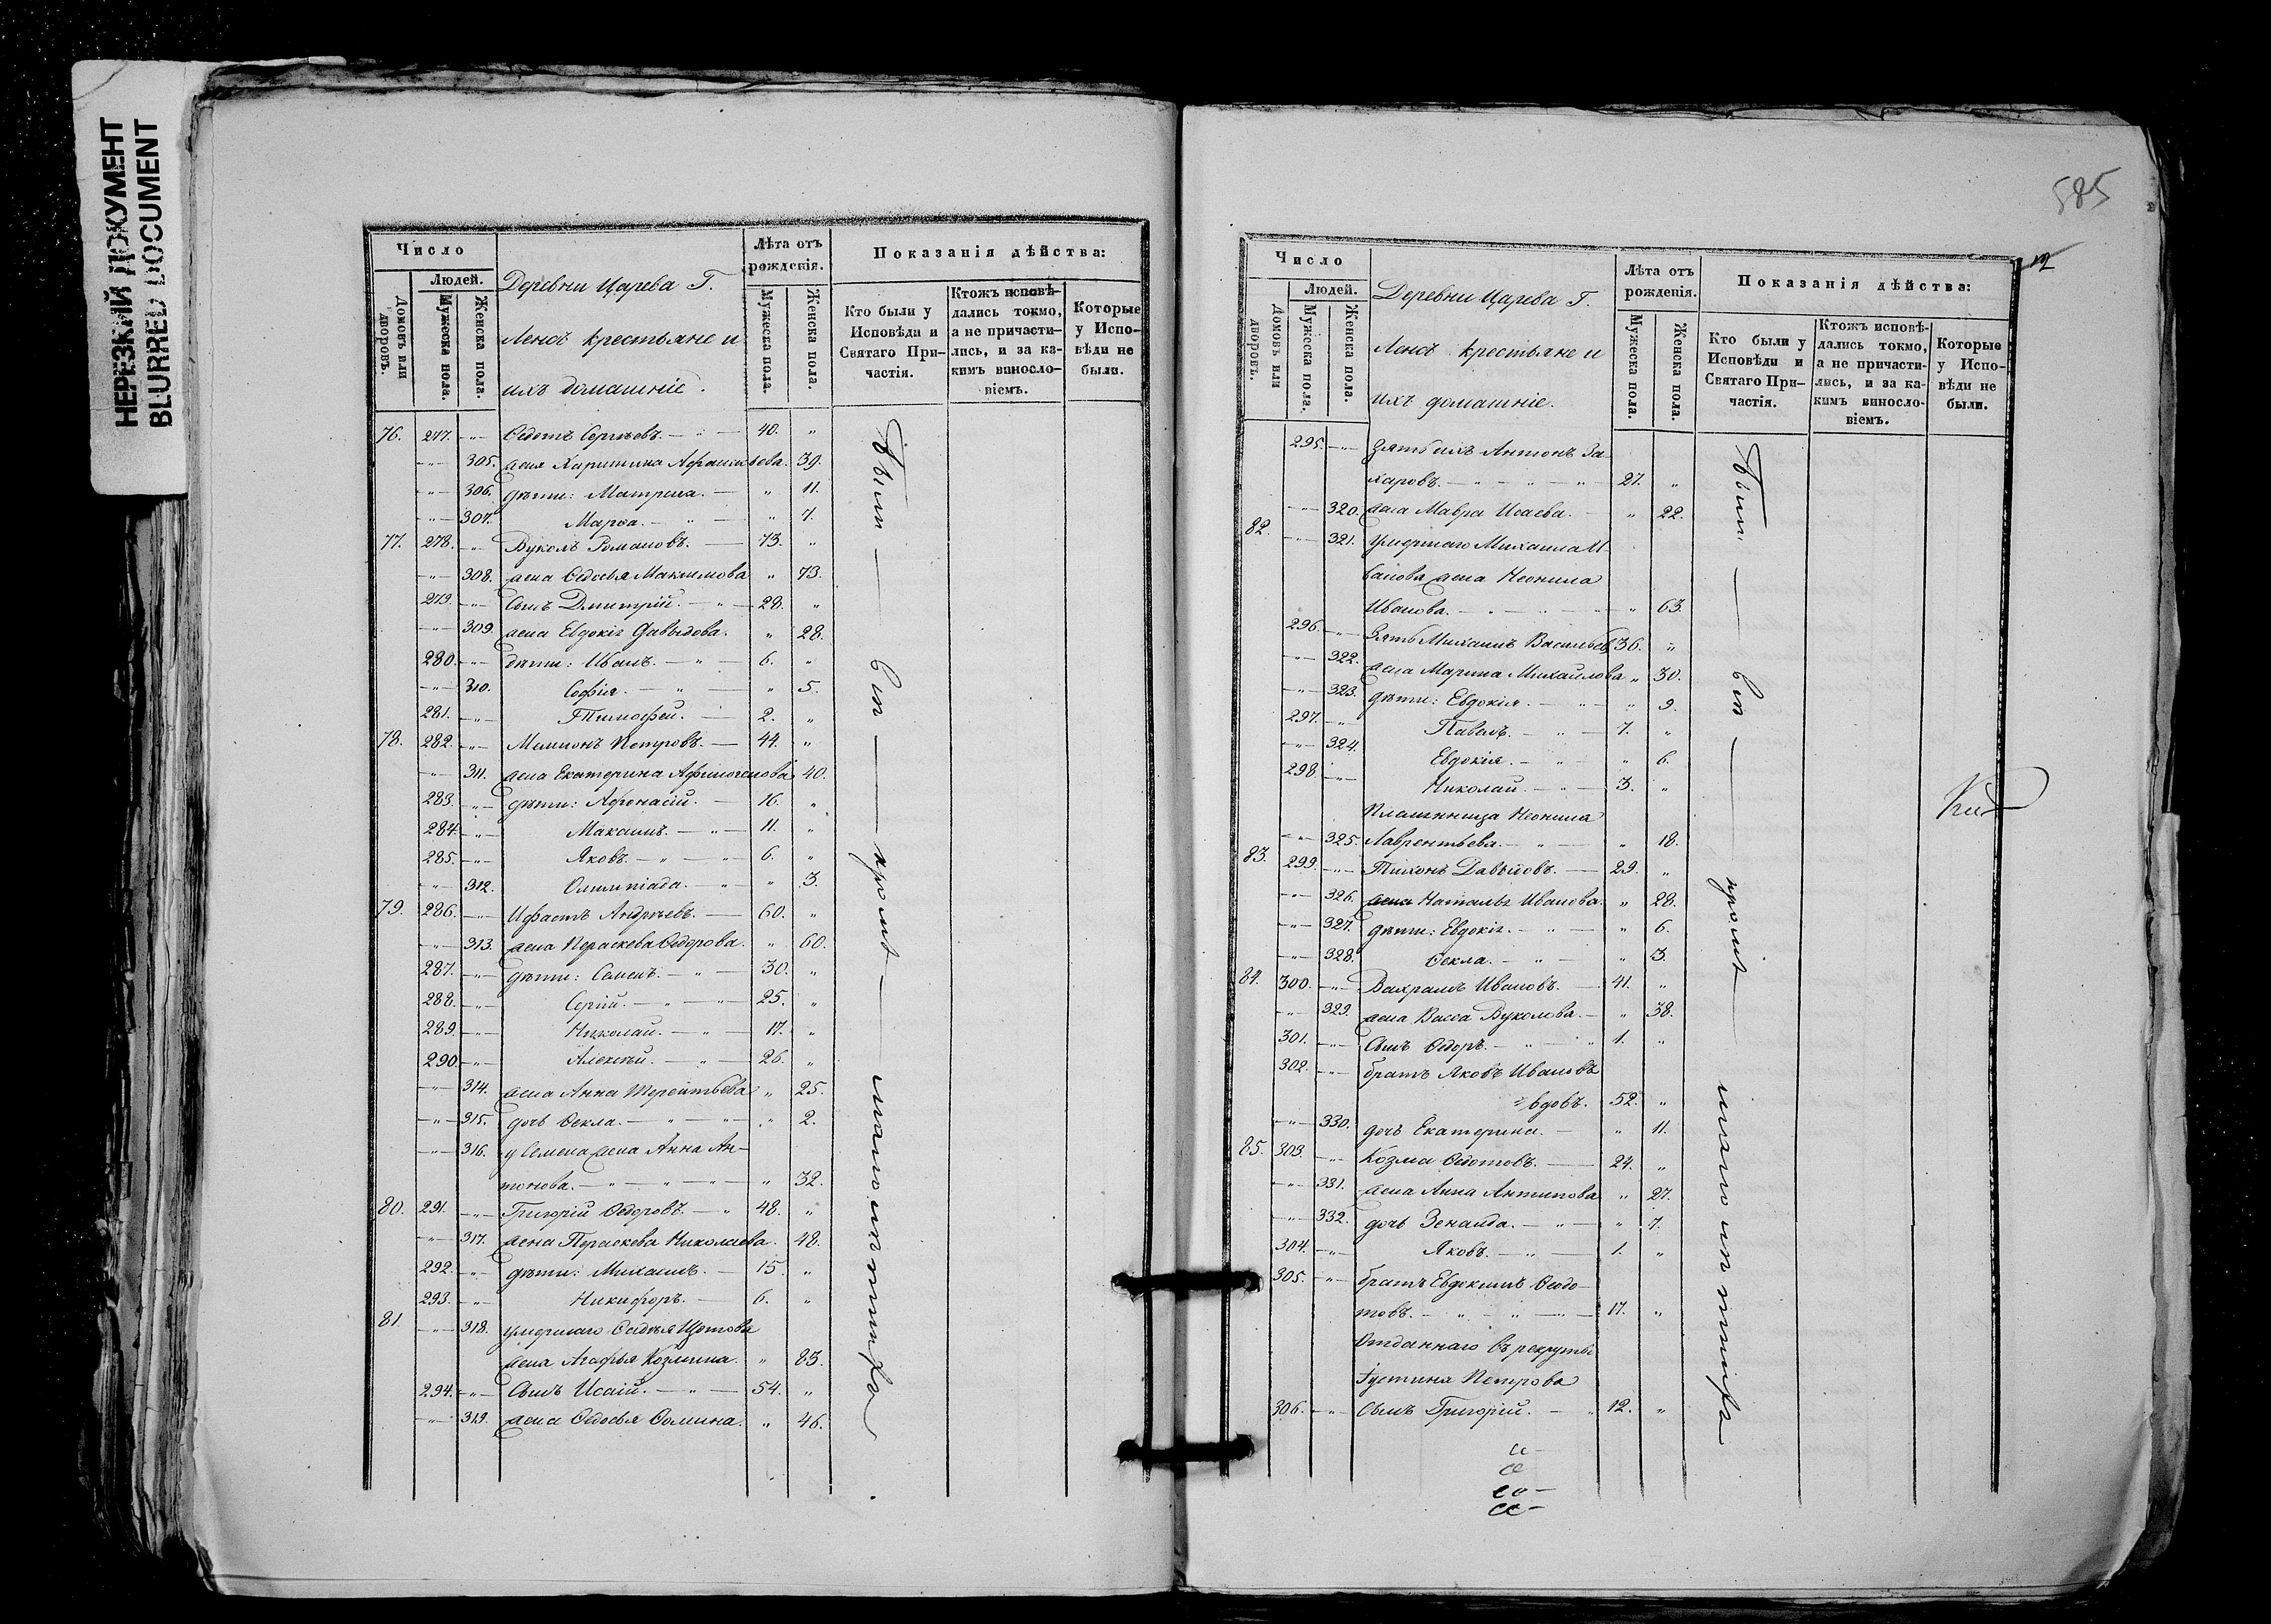 НЕРЕЗКИЙ ДОКУМЕНТ
BLURRED DOCUMENT
Число
Людей.
Домовъ или дворовъ.
Мужеска пола.
Женска пола.
Деревни Царева Г.
крестьяне и
ихъ домашніе.
Лѣта отъ рожденія.
Мужеска пола.
Женска пола.
Показанія дѣйства:
Кто были у Исповѣди и Святаго Причастія.
Ктожъ исповѣдались токмо, а не причастились, и за какимъ винословіемъ.
Которые у Исповѣди не были.
76. 277. Ѳедотъ Сергѣевъ. 40. "
305. жена Харитина Афанасьева. 39.
306. дѣти: Матрена. " 11.
307. Марѳа. " 7.
77. 278. Вуколъ Романовъ. 73. "
308. жена Ѳедосья Максимова " 73.
279. Сынъ Дмитрій. 28. "
309. жена Евдокія Давыдова. " 28.
280. дѣти: Иванъ. 6. "
310. Софія. " 5.
281. Тимофей. 2. "
78. 282. Петровъ. 44. "
311. жена Екатерина Афиногенова 40.
283. дѣти: Афонасій. 16. "
284. Максимъ. 11. "
285. Яковъ. 6. "
312. Олимпіада. " 3.
79. 286. Ифастъ Андреевъ. 60. "
313. жена Пераскева Ѳедорова. " 60.
287. дѣти: Семенъ. 30. "
288. Сергій. 25. "
289. Николай. 17. "
290. Алексѣй. 26. "
314. жена Анна Терентьева " 25.
315. дочь Ѳекла. " 2.
316. у Семена жена Анна Ан-
тонова. " 32.
80. 291. Григорій Ѳедоровъ. 48. "
317. жена Пераскева Николаева. 48.
292. дѣти: Михаилъ. 15. "
293. Никифоръ. 6. "
81. 318. умершаго
жена Агафья Козмина. " 83.
294. Сынъ Исаій. 54. "
319. жена Ѳедосья Ѳомина. " 46.
Были — въ — — —
585
12
Число
Людей.
Домовъ или дворовъ.
Мужеска пола.
Женска пола.
Деревни Царева Г.
крестьяне и
ихъ домашніе.
Лѣта отъ рожденія.
Мужеска пола.
Женска пола.
Показанія дѣйства:
Кто были у Исповѣди и Святаго Причастія.
Ктожъ исповѣдались токмо, а не причастились, и за какимъ винословіемъ.
Которые у Исповѣди не были.
295. Зять ихъ Антонъ За-
харовъ. 27. "
320. жена Мавра Исаева. " 22.
82. 321. умершаго Михаила И-
ванова жена Неонила
Иванова. " 63.
296. Зять Михаилъ Васильевъ 36. "
322. жена Марина Михайлова " 30.
323. дѣти: Евдокія. " 9.
297. Павелъ. 7. "
324. Евдокія. " 6.
298. Николай. 3. "
Племянница Неонила
325. Лаврентьева. " 18.
83. 299. Тихонъ Давыдовъ. 29. "
326. жена Наталья Иванова. " 28.
327. дѣти: Евдокія. " 6.
328. Ѳекла. " 3.
84. 300. Вахрамъ Ивановъ. 41. "
329. жена Васса Вуколова. " 38.
301. Сынъ Ѳедоръ. 1. "
302. братъ Яковъ Ивановъ
вдовъ. 52. "
330. дочь Екатерина. " 11.
85. 303. Козма Ѳедотовъ. 24. "
331. жена Анна Антипова " 27.
332. дочь Зенаида. " 7.
304. Яковъ. 1. "
305. братъ Евдокимъ Ѳедо-
товъ. 17. "
Отданнаго въ рекруты
Іустина Петрова
306. Сынъ Григорій. 12. "
Были — въ — — —